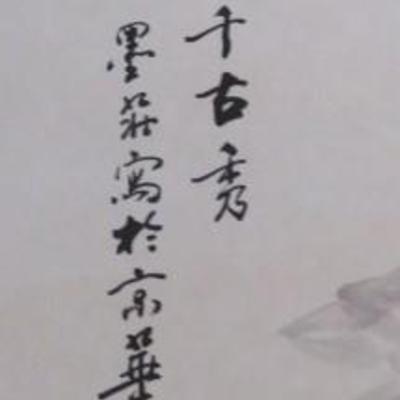 千古秀
墨莊寫於京華